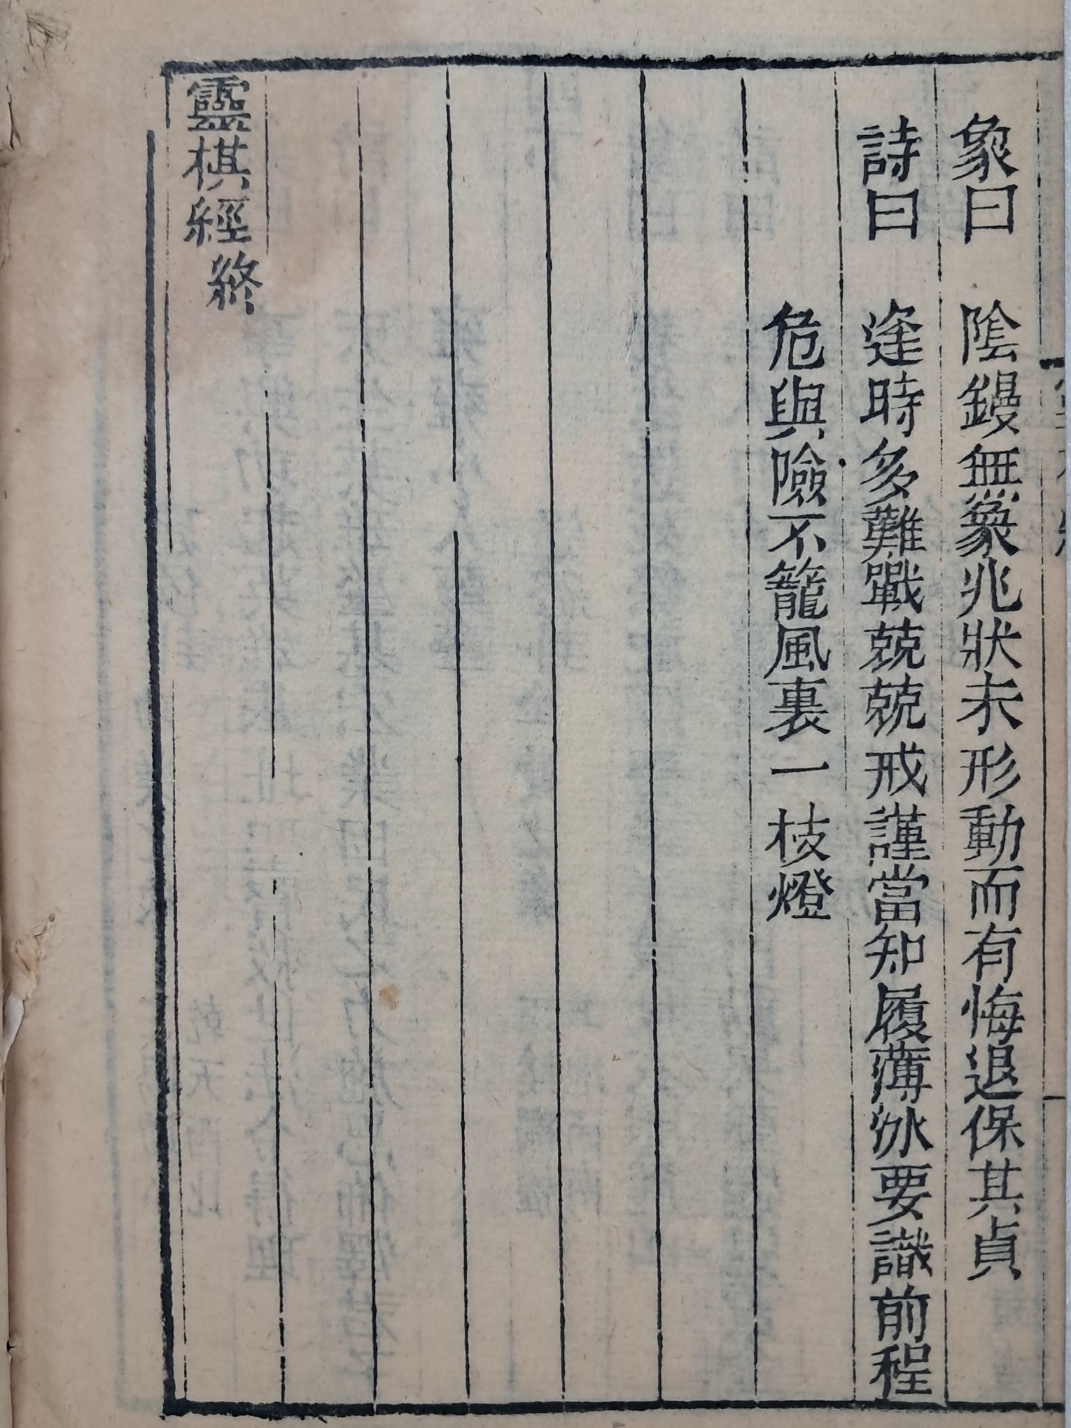 象曰　陰鏝無象兆狀未形動而有悔退保其貞
詩曰　逢時多難戰兢兢戒謹當知履薄冰要識前程
危與險不籠風裏一枝燈
靈棋經終